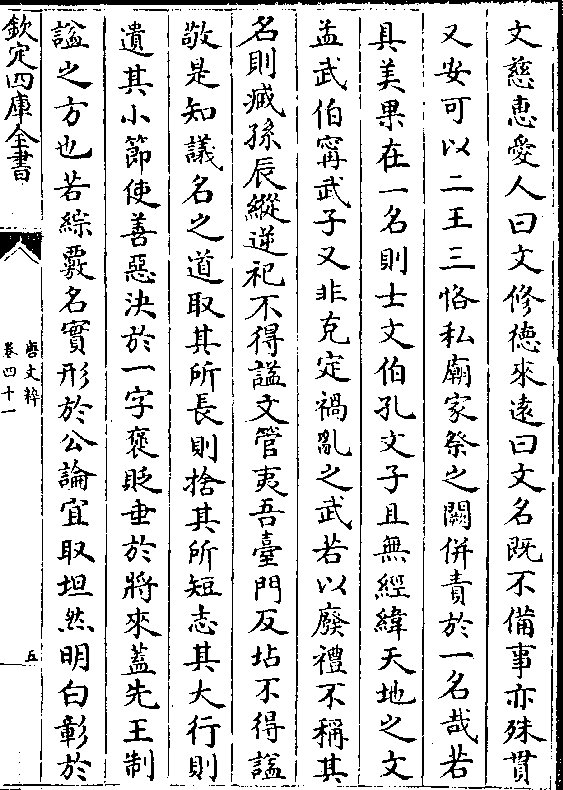 文慈惠愛人曰文修德來遠曰文名既不備事亦殊貫
又安可以二王三恪私廟家祭之闕併責於一名哉若
具美果在一名則士文伯孔文子且無經緯天地之文
孟武伯甯武子又非克定禍亂之武若以廢禮不稱其
名則臧孫辰縱逆祀不得諡文管夷吾臺門反坫不得諡
敬是知議名之道取其所長則捨其所短志其大行則
遺其小節使善惡決於一字褒貶垂於將來蓋先王制
諡之方也若綜覈名實形於公論宜取坦然明白彰於
欽定四庫全書
唐文粹
卷四十一
五